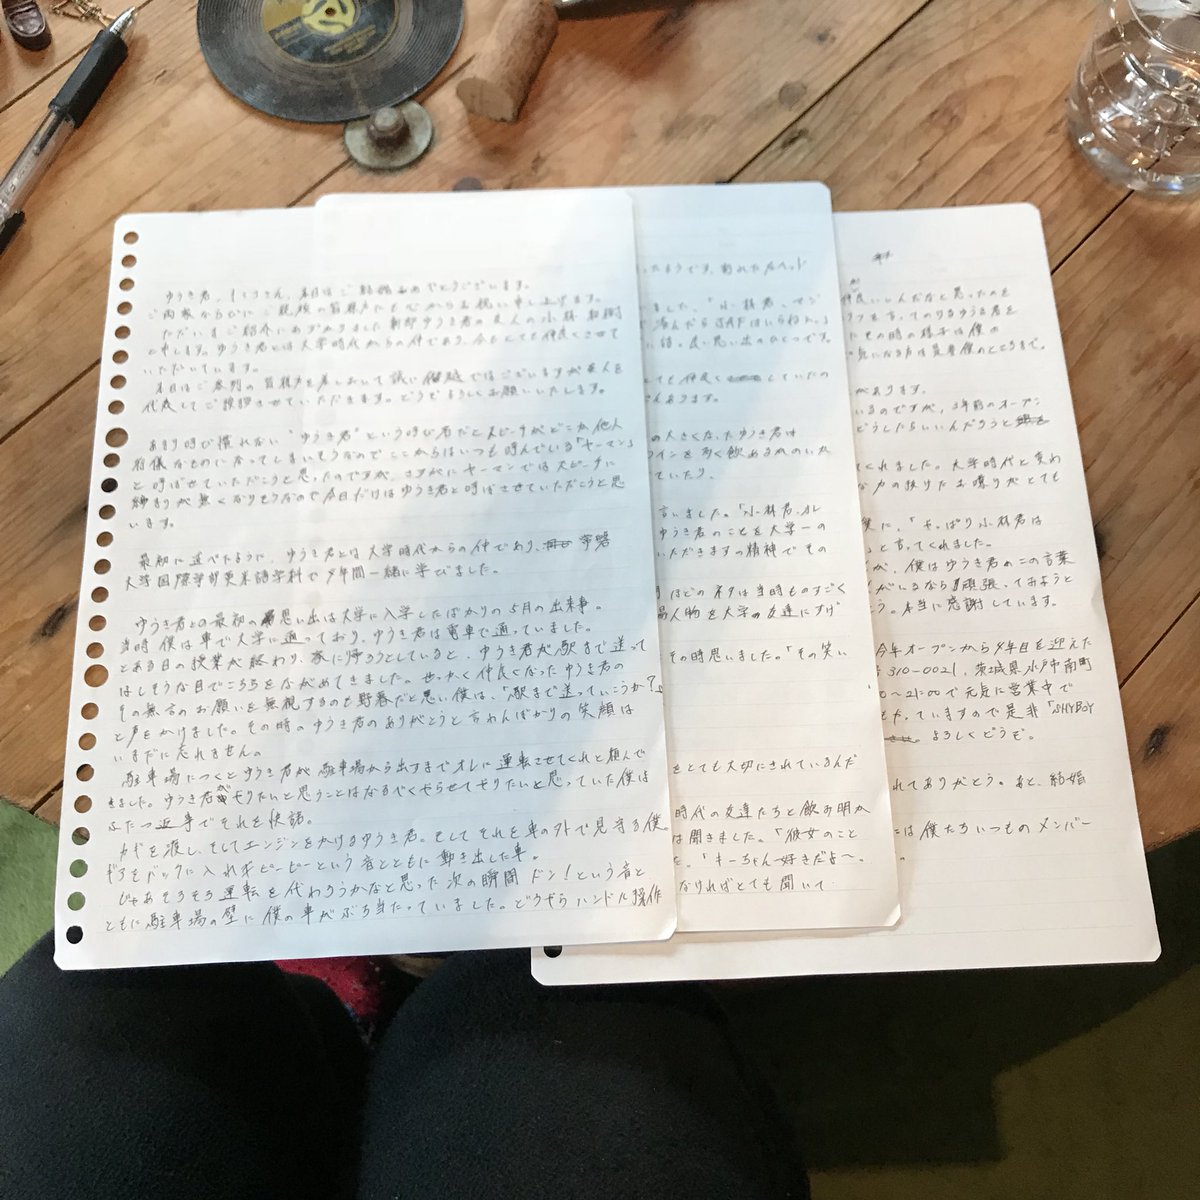 ゆうき君、
さん、本日はご結婚おめでとうございます。
ご両家ならびにご親族の皆様方にも心からお祝い申し上げます。
ただいまご紹介にあずかりました新郎ゆうき君の友人の小林
と申します。ゆうき君とは大学時代からの仲であり、今もとても仲良くさせて
いただいています。
本日はご参列の皆様方を差しおいて誠に僭越ではございますが友人を
代表してご挨拶させていただきます。どうぞよろしくお願いいたします。
あまり呼び慣れない"ゆうき君"という呼び名だとスピーチがどこか他人
行儀なものになってしまいそうなのでここからはいつも呼んでいる「ヤーマン」
と呼ばせていただこうと思ったのですが、さすがにヤーマンではスピーチに
締まりが無くなりそうなので今日だけはゆうき君と呼ばさせていただこうと思
います。
最初に述べたように、ゆうき君とは大学時代からの仲であり、常磐
大学国際学部英米語学科で4年間一緒に学びました。
ゆうき君との最初の思い出は大学に入学したばかりの5月の出来事。
当時僕は車で大学に通っており、ゆうき君は電車で通っていました。
とある日の授業が終わり、家に帰ろうとしていると、ゆうき君が駅まで送って
ほしそうな目でこちらをながめてきました。せっかく仲良くなったゆうき君の
その無言のお願いを無視するのも野暮だと思い僕は、「駅まで送っていこうか?」
と声をかけました。その時のゆうき君のありがとうと言わんばかりの笑顔は
いまだに忘れません。
駐車場につくとゆうき君が駐車場から出すまでオレに運転させてくれと頼んで
きました。ゆうき君がやりたいと思うことはなるべくやらせてやりたいと思っていた僕は
ふたつ返事でそれを快諾。
カギを渡し、そしてエンジンをかけるゆうき君。そしてそれを車の外で見守る僕。
ギアをバックに入れギピーピーという音とともに動き出した車。
じゃあそろそろ運転を代わろうかなと思った次の瞬間ドン!という音と
ともに駐車場の壁に僕の車がぶち当たっていました。どうやらハンドル操作
ったようです。
ました。「小林君、マジ
んだらJAFはいらねえ。」
良い思い出のひとつです。
ても仲良くしていたの
あります。
の大きくなったゆうき君は
インを多く飲める
ていたり、
言いました。「小林君、オレ
ゆうき君のことを大学一の
いただきますの精神でその
ほどのネタは当時ものすごく
人物を大学の友達にすげ
その時思いました。「その笑い
をとても大切にされているんだ
時代の友達たちと飲み明か
は聞きました。「彼女のこと
た。「キーちゃん好きだよ〜。
なければとても聞いて
仲良いいんだなと思ったのを
その時の様子は僕の
があります。
いるのですが、3年前のオープン
どうしたらいいんだろうと
くれました。大学時代と変わ
な力の抜けたお喋りがとても
僕に、「やっぱり小林君は
」と言ってくれました。
が、僕はゆうき君のこの言葉
がいるなら頑張っておようと
う。本当に感謝しています。
今年オープンから4年目を迎えた
310-0021、茨城県水戸市南町
0〜21:00で元気に営業中で
とやっていますので是非「SHYBOY
よろしくどうぞ。
れてありがとう。あと、結婚
は僕たちいつものメンバー